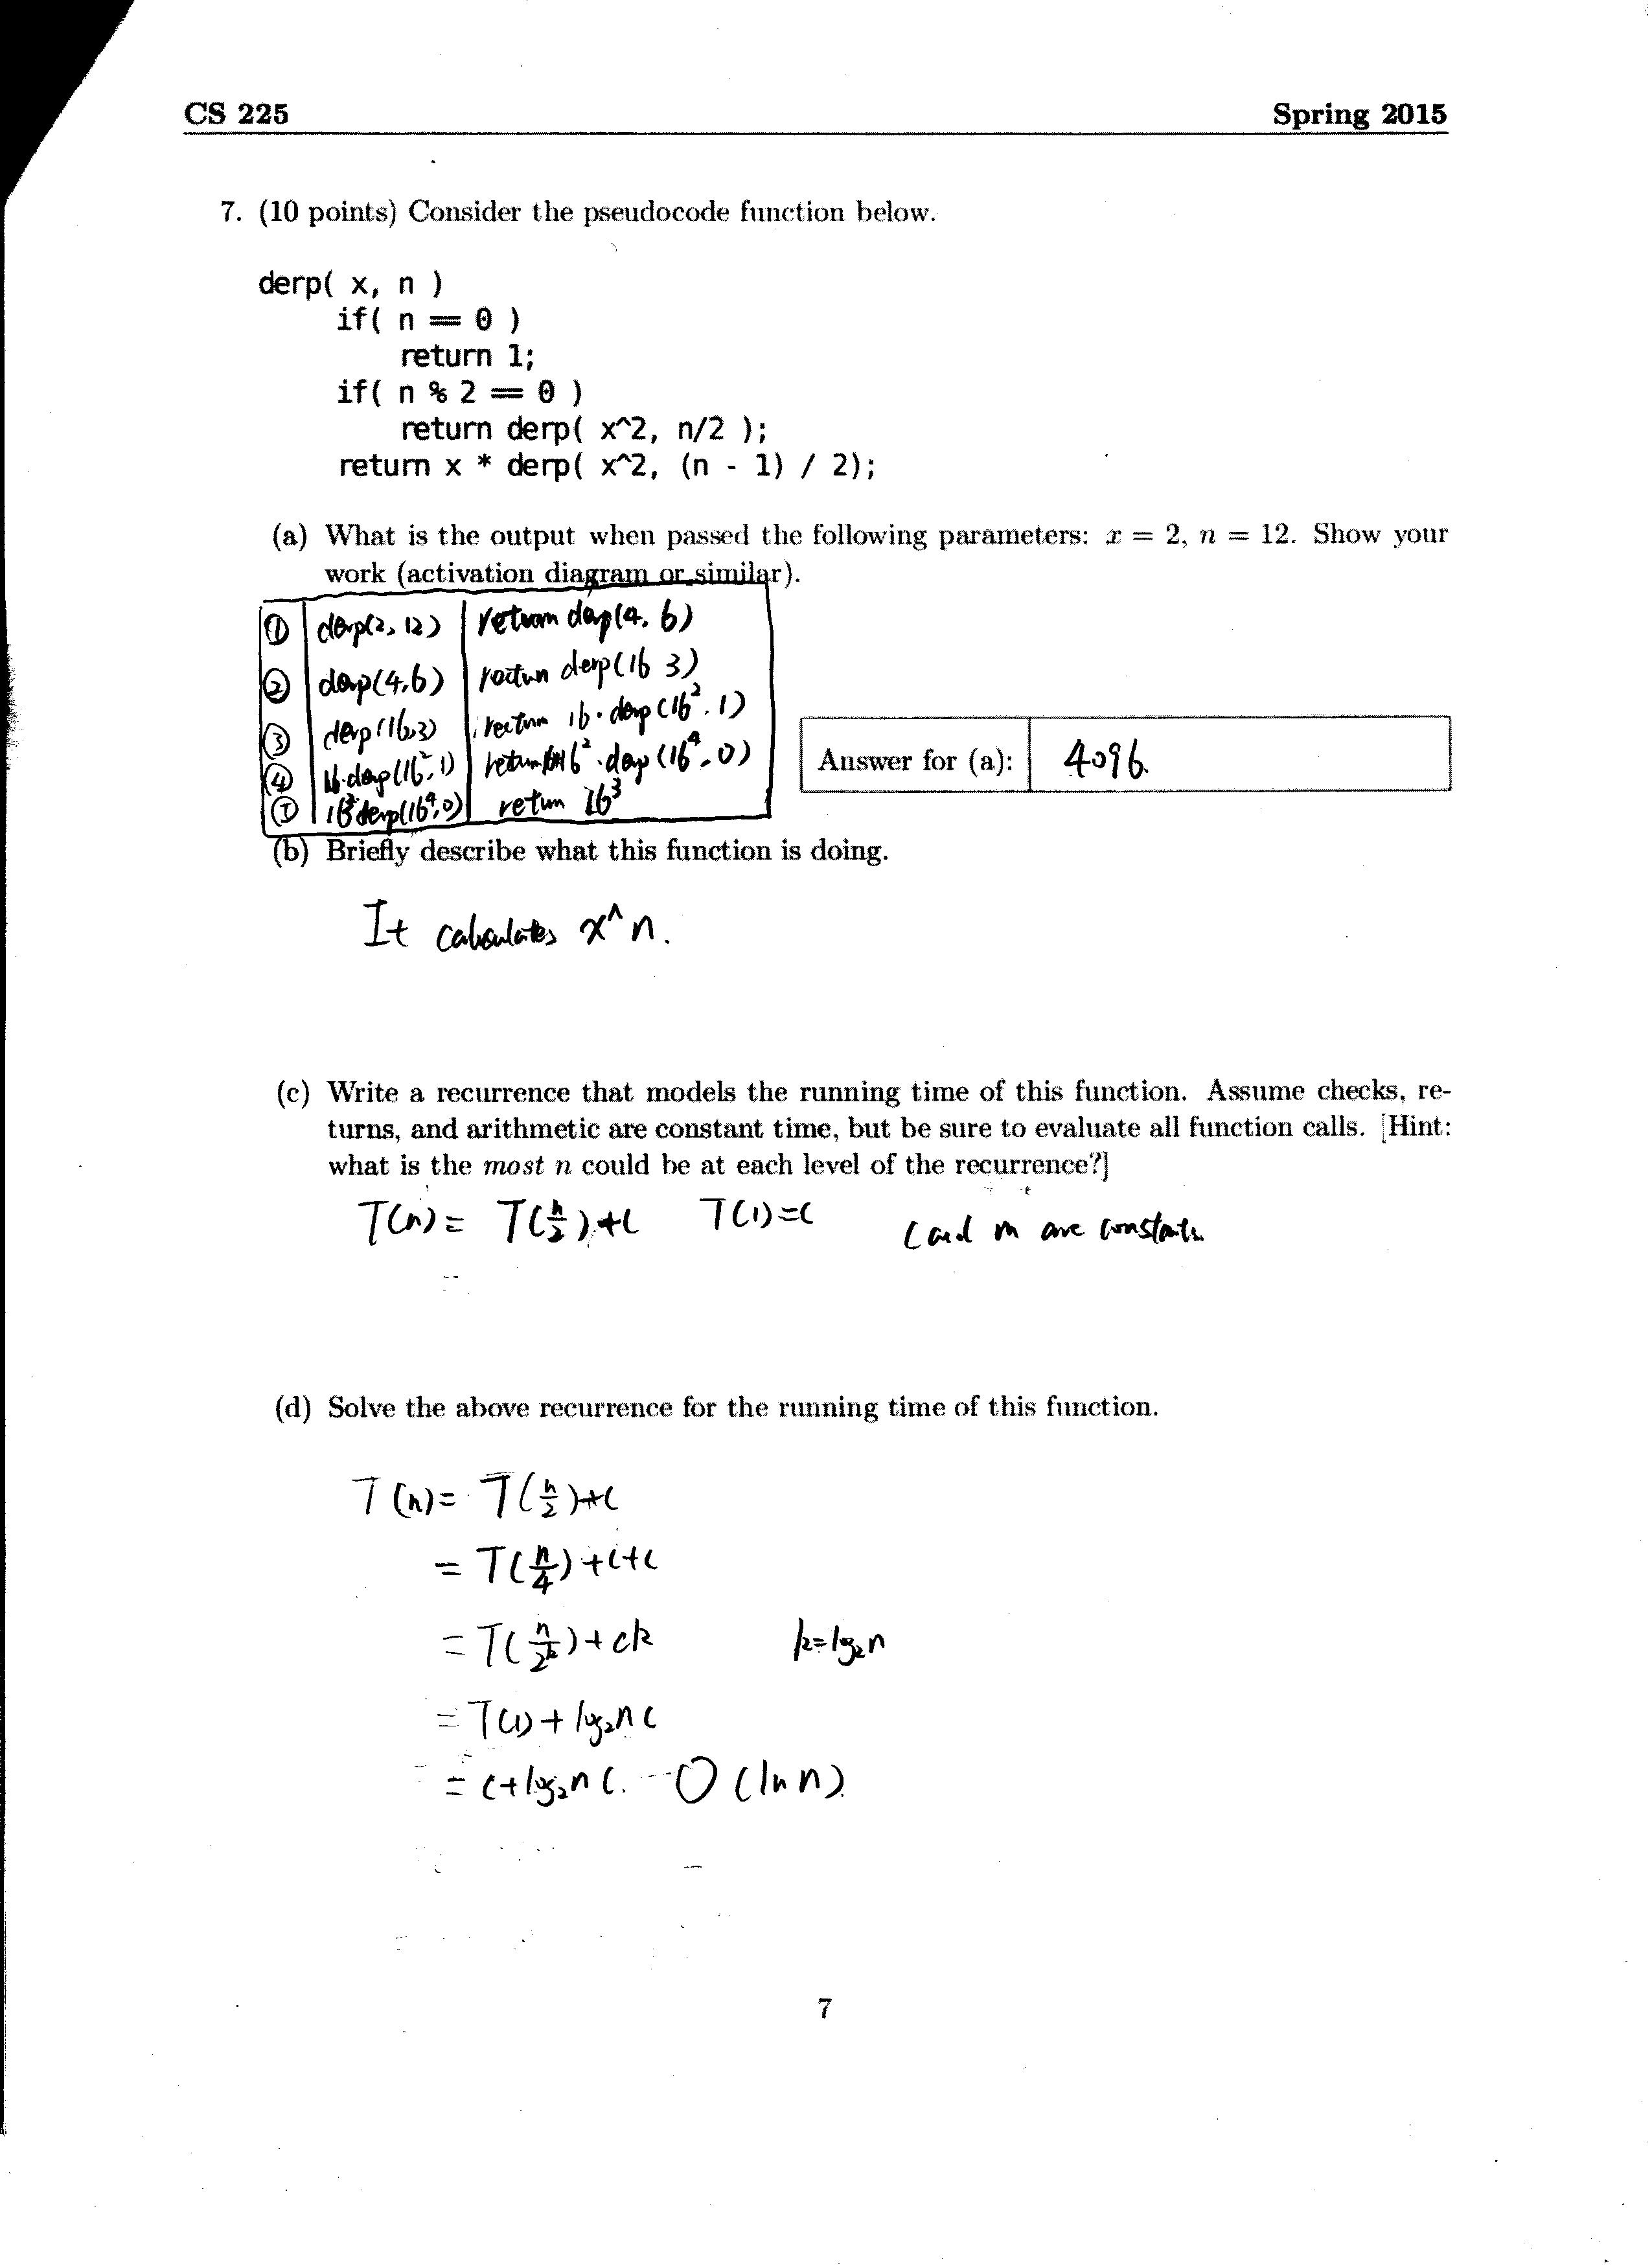 CS 225 Spring 2015
7. (10 points) Consider the pseudocode function below.
derp( x, n )
if( n == 0 )
return 1;
if( n % 2 == 0 )
return derp( x^2, n/2 );
return x * derp( x^2, (n - 1) / 2);
(a) What is the output when passed the following parameters: x = 2, n = 12. Show your
work (activation diagram or similar).
① derp(2, 12) return derp(4, 6)
② derp(4,6) return derp(16 3)
③ derp(16,3) return 16 · derp(16², 1)
④ 16·derp(16², 1) return 16² · derp(16⁴, 0)
16³derp(16⁴,0) return 16³
Answer for (a): 4096.
(b) Briefly describe what this function is doing.
It calculates x^n.
(c) Write a recurrence that models the running time of this function. Assume checks, re-
turns, and arithmetic are constant time, but be sure to evaluate all function calls. [Hint:
what is the most n could be at each level of the recurrence?]
T(n) = T(n/2)+c T(1)=c c and m are constants.
(d) Solve the above recurrence for the running time of this function.
T(n) = T(n/2)+c
= T(n/4)+c+c
= T(n/2^k)+ck k=log₂n
= T(1)+log₂n c
= c+log₂n c. O(ln n).
7